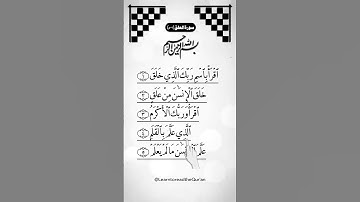 سورة العلق
بسم الله الرحمن الرحيم
ٱقۡرَأۡ بِٱسۡمِ رَبِّكَ ٱلَّذِي خَلَقَ ١
خَلَقَ ٱلۡإِنسَٰنَ مِنۡ عَلَقٍ ٢
ٱقۡرَأۡ وَرَبُّكَ ٱلۡأَكۡرَمُ ٣
ٱلَّذِي عَلَّمَ بِٱلۡقَلَمِ ٤
عَلَّمَ ٱلۡإِنسَٰنَ مَا لَمۡ يَعۡلَمۡ ٥
@LearntoreadtheQuran